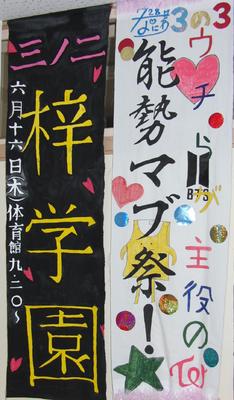 三ノ二
梓学園
六月十六日(木)体育館九:二〇～
3の3
ウチらが主役の
能勢マブ祭!